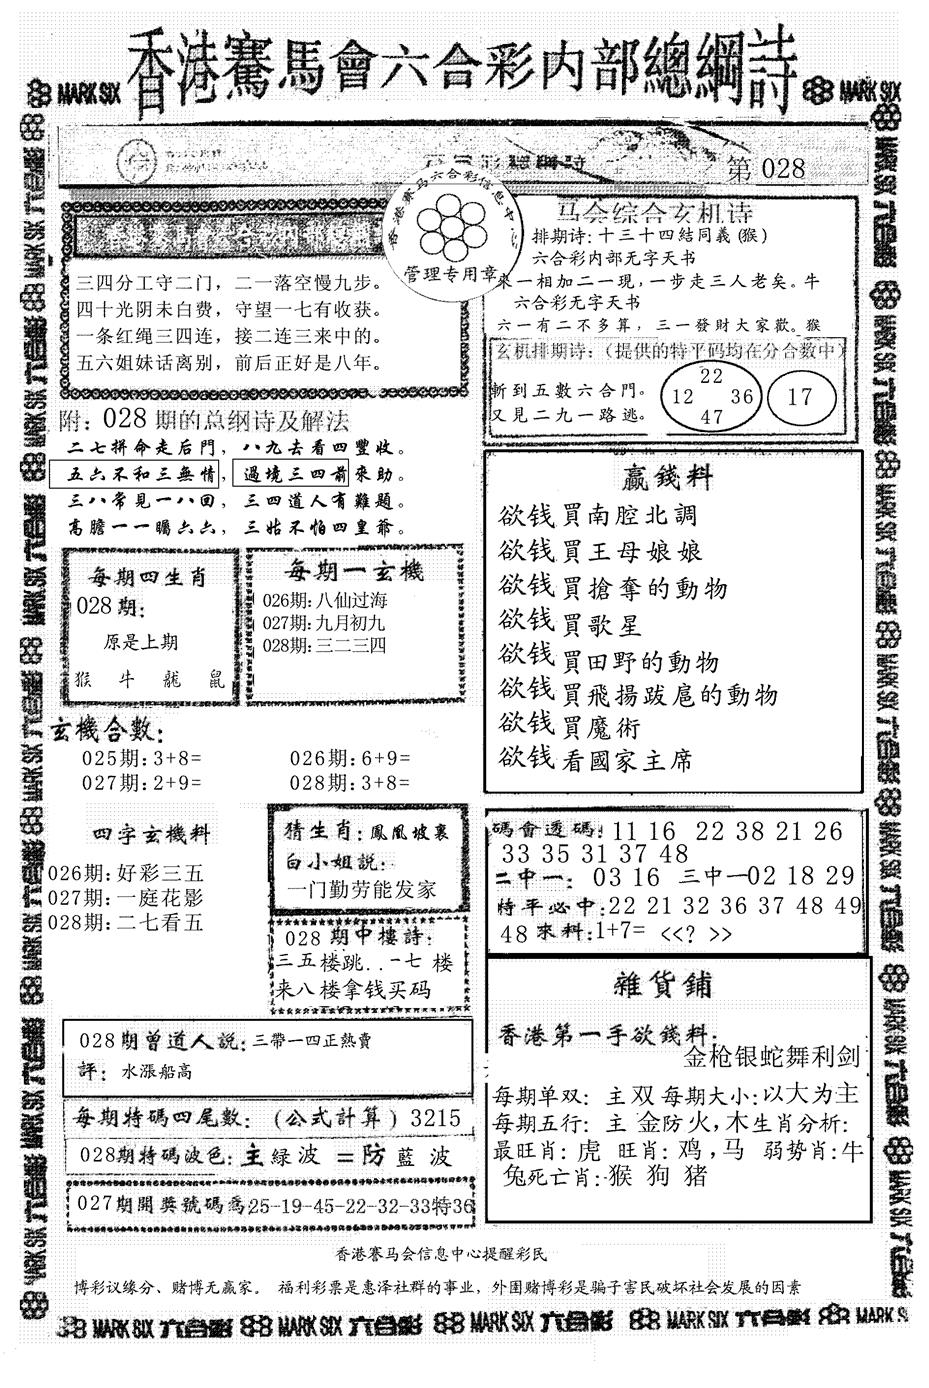 香港賽馬會六合彩内部總綱詩
MARK SIX
MARK SIX
第 028
香港赛马六合彩信息中
管理专用章
三四分工守二门，二一落空慢九步。
四十光阴未白费，守望一七有收获。
一条红绳三四连，接二连三来中的。
五六姐妹话离别，前后正好是八年。
马会综合玄机诗
排期诗:十三十四結同義(猴)
六合彩内部无字天书
來一相加二一現,一步走三人老矣。牛
六合彩无字天书
六一有二不多算，三一發財大家歡。猴
玄机排期诗:（提供的特平码均在分合数中）
斬到五數六合門。
又見二九一路逃。
22
12 36
47
17
附: 028 期的总纲诗及解法
二七拼命走后門，八九去看四豐收。
五六不和三無情，過境三四前來助。
三八常見一八回，三四道人有難題。
高膽一一矚六六，三姑不怕四皇爺。
每期四生肖
028期:
原是上期
猴 牛 龍 鼠
每期一玄機
026期:八仙过海
027期:九月初九
028期:三二三四
玄機合數:
025期:3+8= 026期:6+9=
027期:2+9= 028期:3+8=
四字玄機料
026期:好彩三五
027期:一庭花影
028期:二七看五
猜生肖:鳳凰坡裏
白小姐説:
一门勤劳能发家
028 期中樓詩:
三五楼跳..一七 楼
来八楼拿钱买码
028期曾道人説:三帶一四正熱賣
評: 水漲船高
每期特碼四尾數:（公式計算）3215
028期特碼波色:主綠波 =防藍波
027期開獎號碼爲:25-19-45-22-32-33特36
赢錢料
欲钱買南腔北調
欲钱買王母娘娘
欲钱買搶奪的動物
欲钱買歌星
欲钱買田野的動物
欲钱買飛揚跋扈的動物
欲钱買魔術
欲钱看國家主席
碼會透碼:11 16 22 38 21 26
33 35 31 37 48
二中一: 03 16 三中一02 18 29
特平必中:22 21 32 36 37 48 49
48來料:1+7= <<? >>
雜貨鋪
香港第一手欲錢料:
金枪银蛇舞利剑
每期单双: 主双每期大小:以大为主
每期五行: 主 金防火,木生肖分析:
最旺肖:虎 旺肖:鸡,马 弱势肖:牛
兔死亡肖:猴 狗 猪
香港赛马会信息中心提醒彩民
博彩议缘分、赌博无赢家。 福利彩票是惠泽社群的事业，外围赌博彩是骗子害民破坏社会发展的因素
MARK SIX 六合彩 MARK SIX 六合彩 MARK SIX 六合彩 MARK SIX 六合彩 MARK SIX